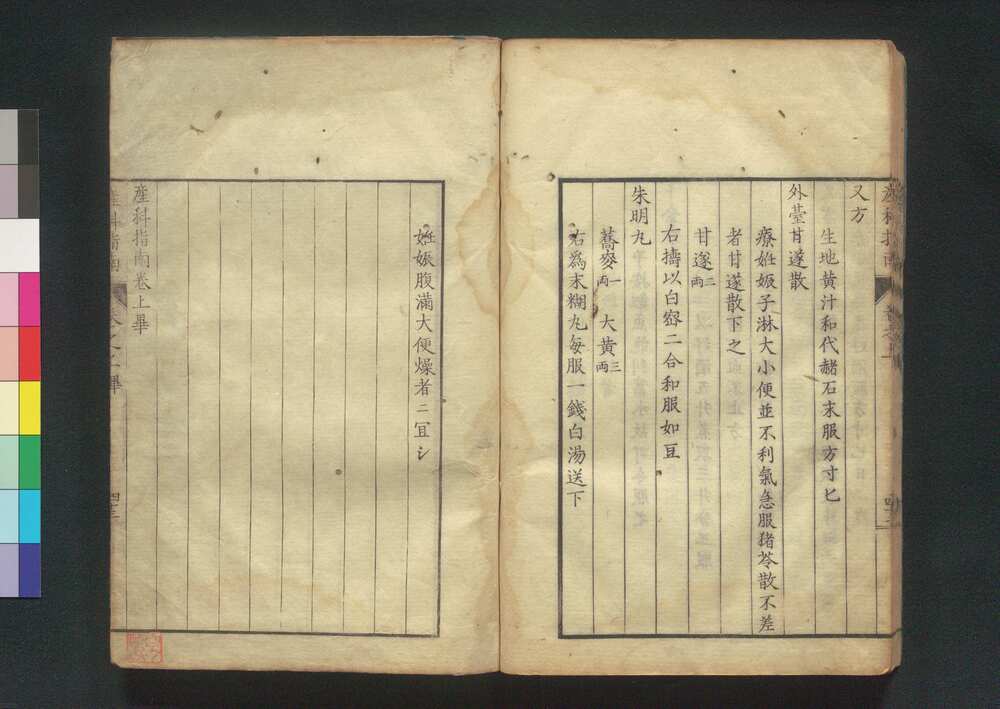 又方
生地黄汁和代赭石末服方寸匕
外䑓甘遂散
療姙娠子淋大小便並不利氣急服猪苓散不差
者甘遂散下之
甘遂二兩
右擣以白宻二合和服如豆
朱明丸
蕎麥一兩 大黄三兩
右爲末糊丸毎服一錢白湯送下
姙娠腹滿大便燥者ニ冝シ
産科指南卷上畢